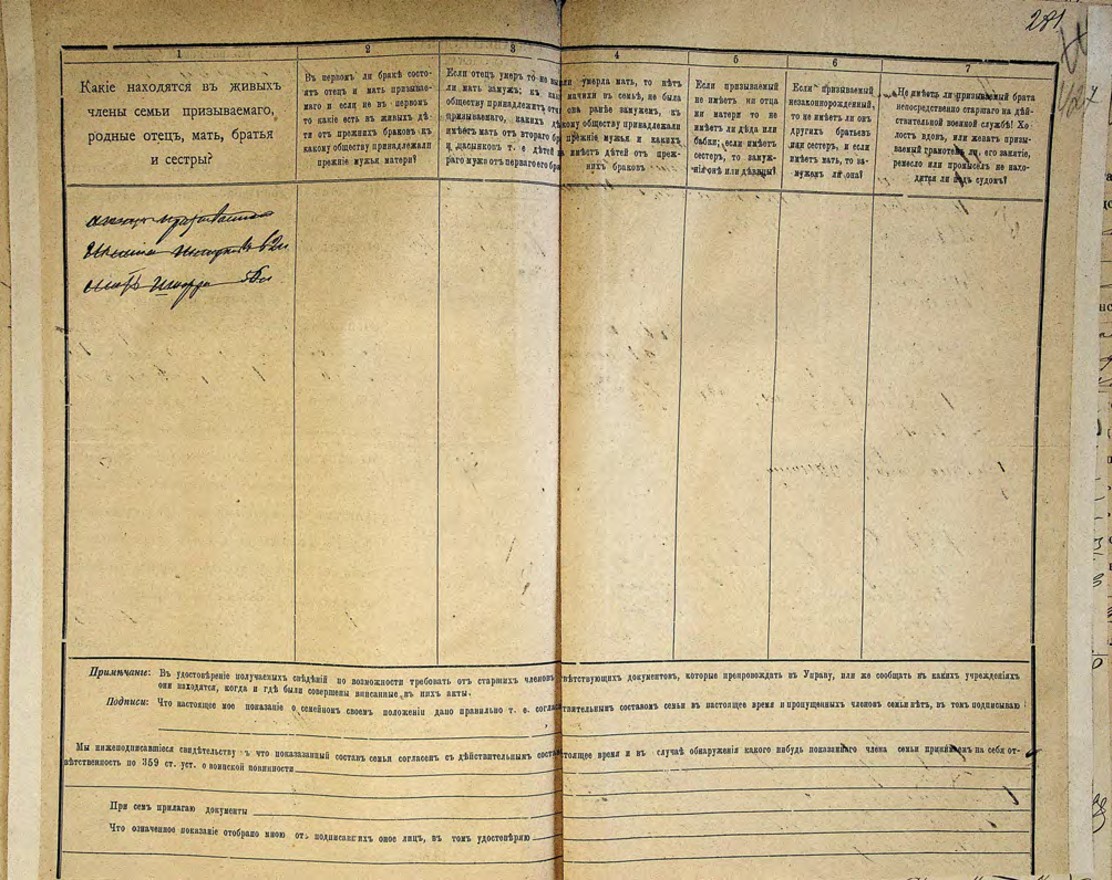 281
1
2
3
4
5
6
7
Какіе находятся въ живыхъ
члены семьи призываемаго,
родные отецъ, мать, братья
и сестры?
Въ первомъ ли бракѣ состо-
ятъ отецъ и мать призывае-
маго и если не въ первомъ
то какіе есть въ живыхъ дѣ-
ти отъ прежнихъ браковъ къ
какому обществу принадлежали
прежніе мужья матери?
Если отецъ умеръ то не вы
ли мать замужъ; къ как
обществу принадлежитъ отч
призываемаго, какихъ дѣ
имѣетъ мать отъ втораго бр
и пасынковъ т. е дѣтей
раго мужа отъ перваго его бра
или умерла мать, то нѣтъ
мачихи въ семьѣ, не была
она ранѣе замужемъ, къ
какому обществу принадлежали
прежніе мужья и какихъ
имѣетъ дѣтей отъ преж-
нихъ браковъ
Если призываемый
не имѣетъ ни отца
ни матери то не
имѣетъ ли дѣда или
бабки; если имѣетъ
сестеръ, то замуж-
нія онѣ или дѣвицы?
Если призываемый
незаконнорожденный,
то не имѣетъ ли онъ
другихъ братьевъ
или сестеръ, и если
имѣетъ мать, то за-
мужемъ ли она?
Не имѣетъ ли призываемый брата
непосредственно старшаго на дѣй-
ствительной военной службѣ? Хо-
лостъ вдовъ, или женатъ призы-
ваемый грамотенъ ли, его занятіе,
ремесло или промыселъ не нахо-
дится ли подъ судомъ?
Примѣчаніе: Въ удостовѣреніе получаемыхъ свѣдѣній по возможности требовать отъ старшихъ членовъ вѣтствующихъ документовъ, которые препровождать въ Управу, или же сообщать въ какихъ учрежденіяхъ
они находятся, когда и гдѣ были совершены вписанные въ нихъ акты.
Подписи: Что настоящее мое показаніе о семейномъ своемъ положеніи дано правильно т. е. соглас ствительнымъ составомъ семьи въ настоящее время и пропущенныхъ членовъ семьи нѣтъ, въ томъ подписываю
Мы нижеподписавшіеся свидѣтельству что показанный составъ семьи согласенъ съ дѣйствительнымъ соста стоящее время и въ случаѣ обнаруженія какого нибудь показаннаго члена семьи принимаемъ на себя от-
вѣтственность по 359 ст. уст. о воинской повинности
При семъ прилагаю документы
Что означенное показаніе отобрано мною отъ подписавшихъ оное лицъ, въ томъ удостовѣряю